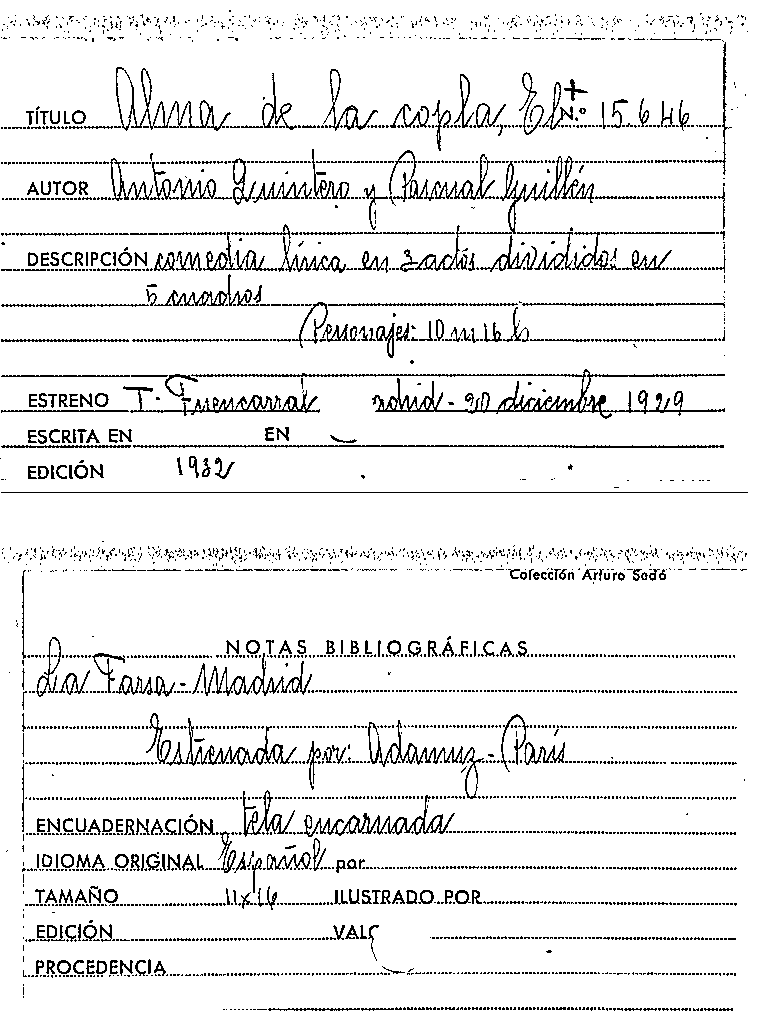 TÍTULO Alma de la copla, El N.º 15646
AUTOR Antonio Quintero y Pascual Guillén
DESCRIPCIÓN comedia lírica en 3 actos divididos en
5 cuadros
Personajes: 10 m 16 h
ESTRENO T. Fuencarral adrid - 20 diciembre 1929
ESCRITA EN EN
EDICIÓN 1932
Colección Arturo Sedó
NOTAS BIBLIOGRÁFICAS
La Farsa - Madrid
Estrenada por: Adamuz - París
ENCUADERNACIÓN tela encarnada
IDIOMA ORIGINAL Español por
TAMAÑO 11x16 ILUSTRADO POR
EDICIÓN VALO
PROCEDENCIA